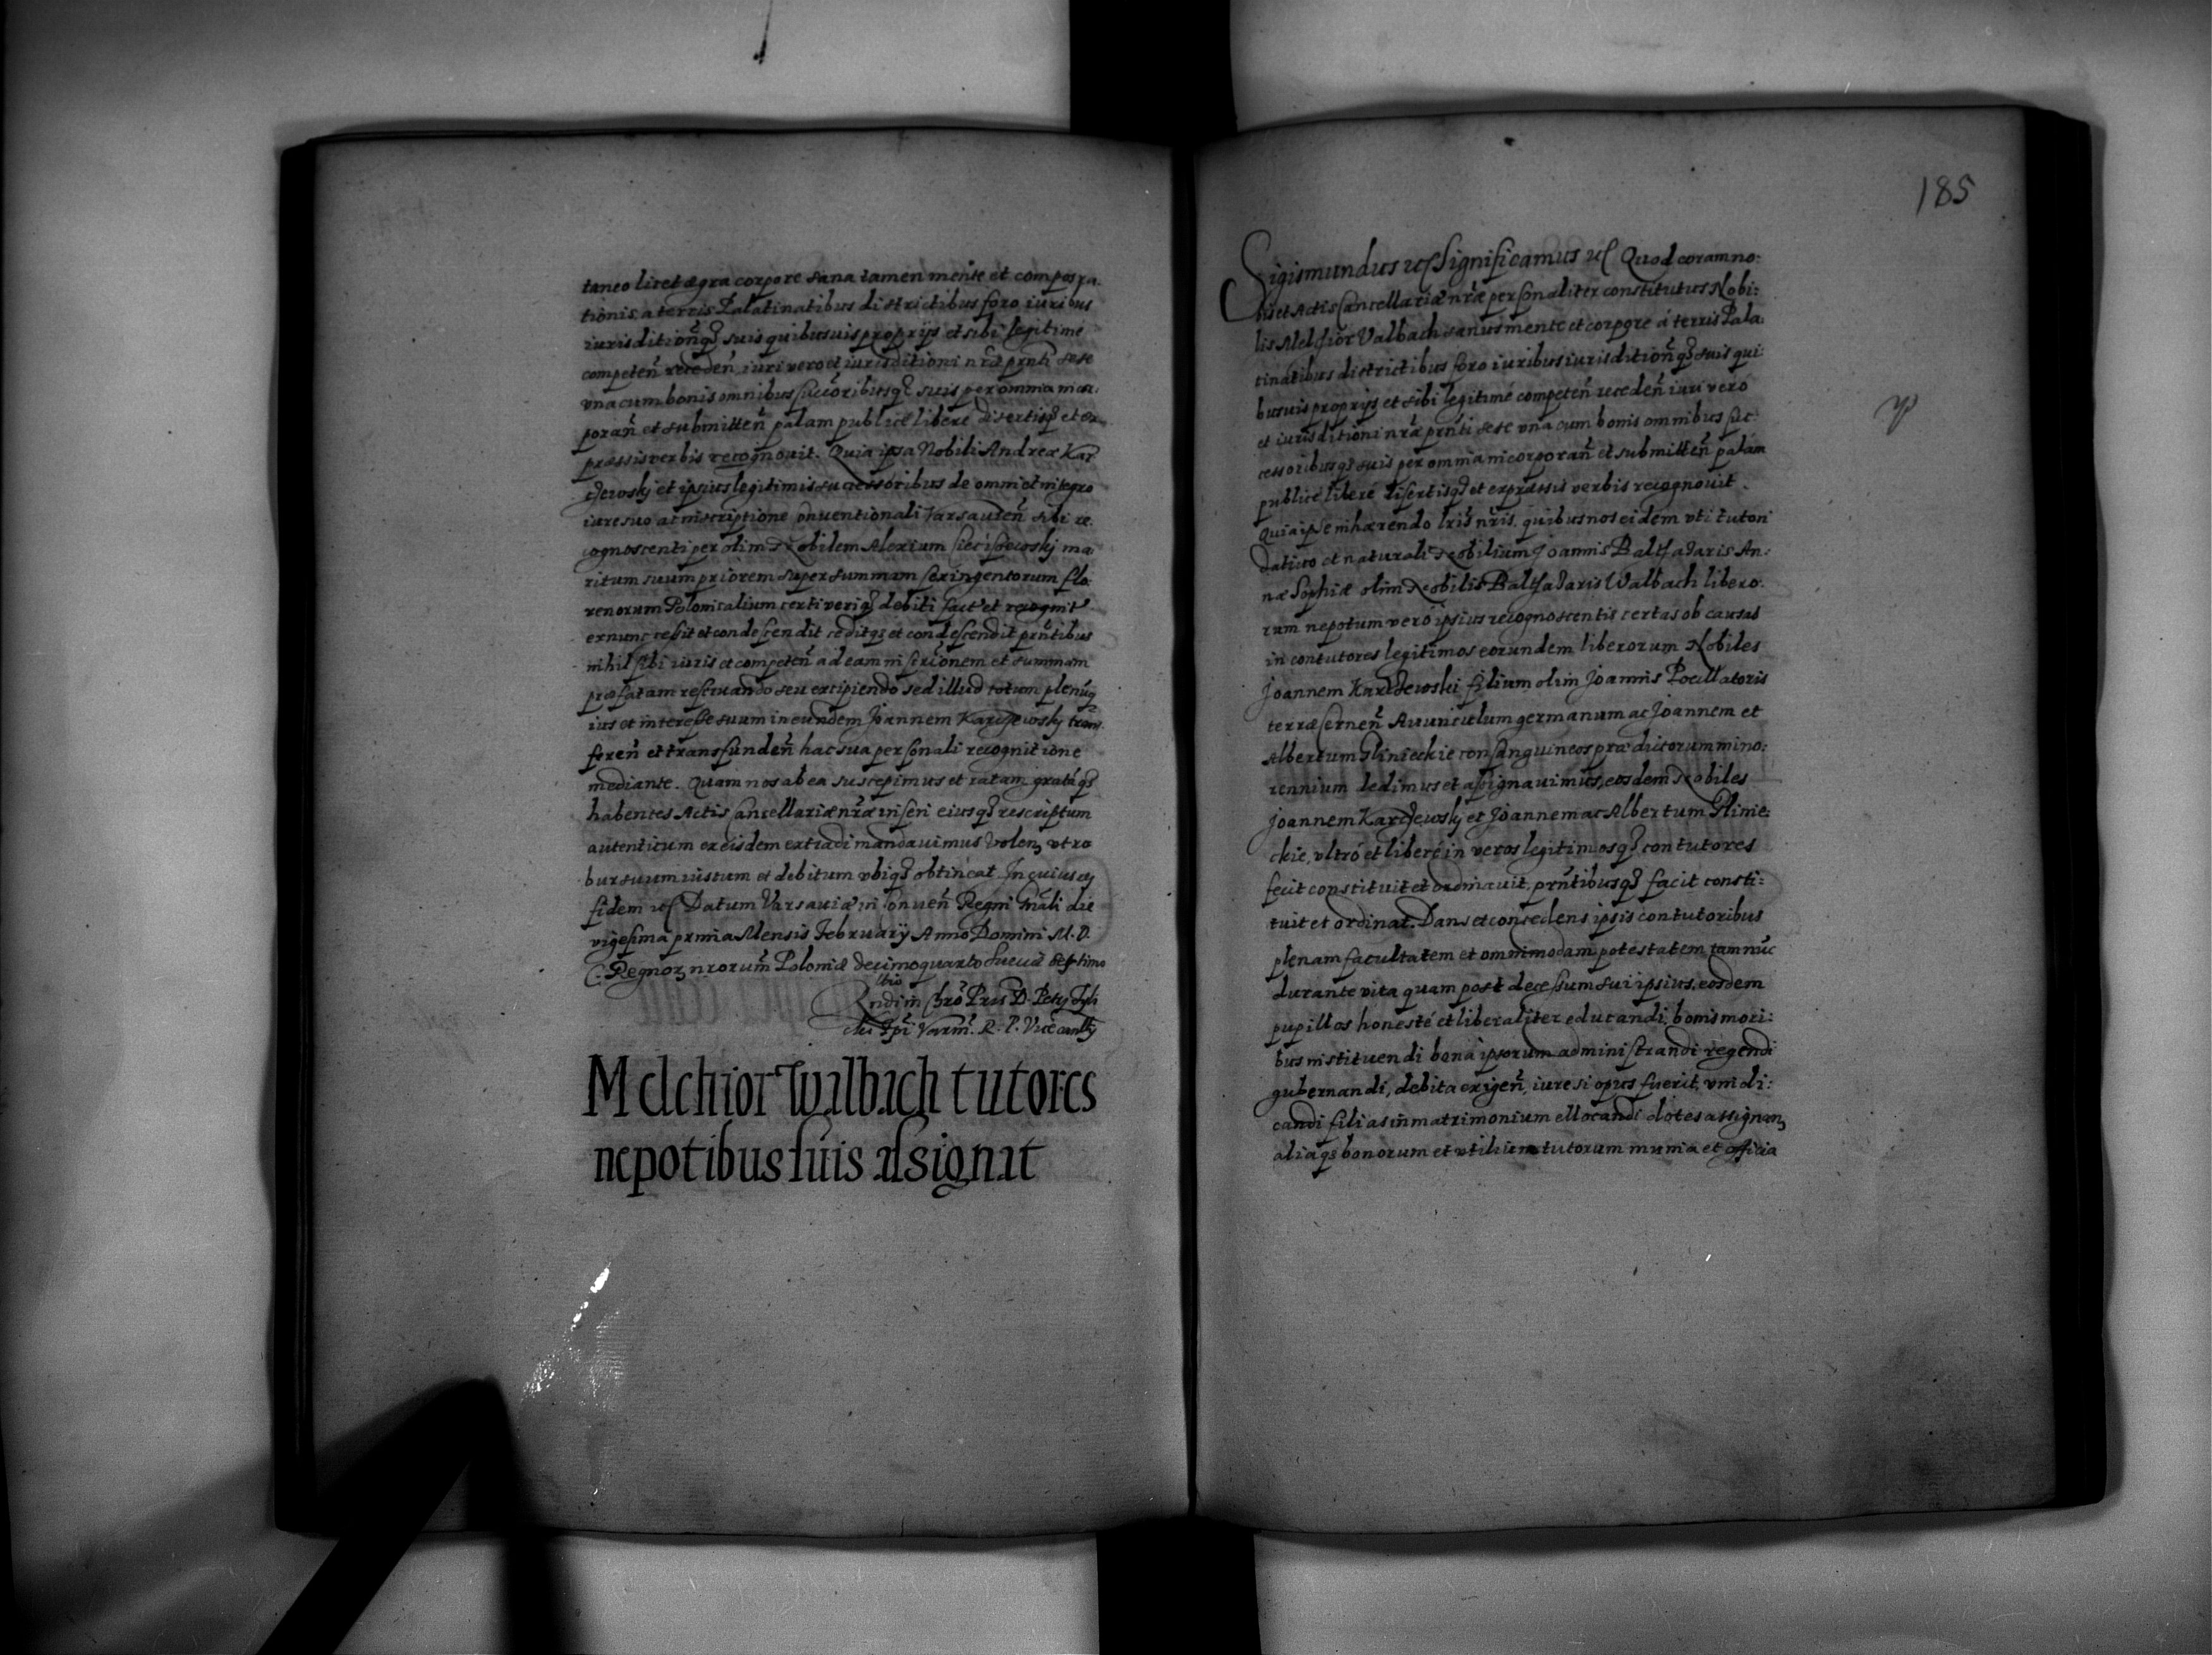 taneo licet ægra corpore sana tamen mente et compos ra-
tionis a terris Palatinatibus districtibus foro iuribus
iurisditionq̃ȝ suis quibusuis proprijs et sibi legitime
competeñ recedeñ iuri vero et iurisditioni nr̃æ prn̄ti sese
vna cum bonis omnibus succ̃oribusqȝ suis per omnia incor-
porañ et submitteñ palam publice libere disertisqȝ et ex-
præssis verbis recognouit. Quia ipsa Nobili Andreæ Kar
cȝewskj et ipsius legitimis successoribus de omni et integro
iure suo ac inscriptione conuentionali Varsauieñ sibi re-
cognoscenti per olim Nobilem Alexium ma-
ritum suum priorem super summam sexingentorum flo-
renorum Polonicalium certi veriqȝ debiti fact et recognit
ex nunc cessit et condescendit ceditqȝ et condescendit prn̄tibus
nihil sibi iuris et competeñ ad eam inscrip̃onem et summam
præfatam reseruando seu excipiendo sed illud totum plenuq̃
ius et interesse suum in eundem Joannem Karcȝewsky trans-
fereñ et transfundeñ hac sua personali recognitione
mediante. Quam nos ab ea suscepimus et ratam gratáqȝ
habentes Actis Cancellariæ nr̃æ inseri eiusqȝ rescriptum
autenticum ex eisdem extradi mandauimus Volenȝ vt ro
bur suum iustum et debitum vbiqȝ obtineat. In cuius rej
fidem etc Datum Varsauiæ in Conueñ Regni Gñali die
vigesima prima Mensis Februarij Anno Domini M. D.
C. Regnorȝ nrorum̃ Poloniæ decimoquarto Sueciæ septimo
Rndi in Chrõ Pris D. Petrj Tyli
cki Ep̃i Varm̃. R. P. Vicecan̄llrj
Melchior Walbach tutores
nepotibus suis assignat
185
Sigismundus etc Significamus etc Quod coram no-
bis et Actis Cancellariæ nr̃æ personaliter constitutus Nobi-
lis Melchior Valbach sanus mente et corpore á terris Pala-
tinatibus districtibus foro iuribus iurisditionq̃ȝ suis qui-
busuis proprijs et sibi legitimé competeñ recedeñ iuri veró
et iurisditioni nr̃æ prn̄ti sese vna cum bonis omnibus suc-
cessoribusqȝ suis per omnia incorporañ et submitteñ palám
publicé liberé disertisqȝ et expræssis verbis recognouit.
Quia ipse inhærendo lris̃ nr̃is, quibus nos eidem vti tutori
datiuo et naturali Nobilium Joannis Baltȝaȝaris An-
næ Sophiæ olim Nobilis Baltȝaȝaris Walbach libero-
rum nepotum veró ipsius recognoscentis certas ob causas
in contutores legitimos eorundem liberorum Nobiles
Joannem Karcȝewski filium olim Joannis Pocillatoris
terræ Cerneñ Auunculum germanum ac Joannem et
Albertum Glinieckie consanguineos prædictorum mino-
rennium dedimus et assignauimus, eosdem Nobiles
Joannem Karcȝewskj et Joannem ac Albertum Glinie-
ckie, vltró et liberé in veros legitimosqȝ contutores
fecit constituit et ordinauit, prn̄tibusqȝ facit consti-
tuit et ordinat. Dans et concedens ipsis contutoribus
plenam facultatem et omnimodam potestatem tam nuc̃
durante vita quam post decessum sui ipsius, eosdem
pupillos honesté et liberaliter educandi, bonis mori-
bus instituendi bona ipsorum administrandi regendi
gubernandi, debita exigeñ, iure si opus fuerit, vindi-
candi filias in matrimonium ellocandi dotes assignanȝ
aliaqȝ bonorum et vtilium tutorum munia et officia